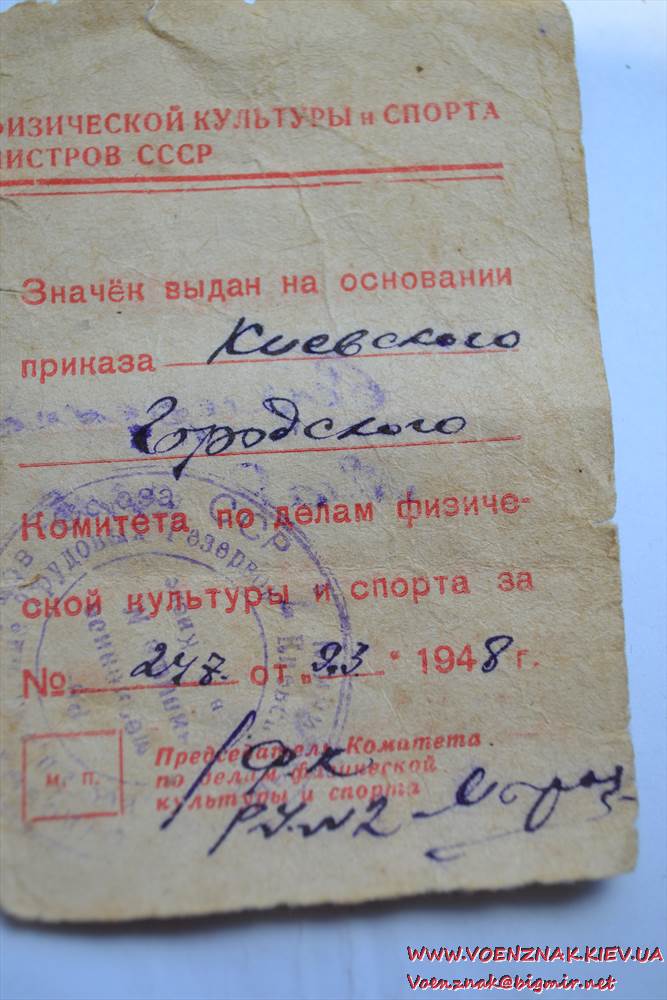 ФИЗИЧЕСКОЙ КУЛЬТУРЫ и СПОРТА
НИСТРОВ СССР
Значёк выдан на основании
приказа Киевского
Городского
Комитета по делам физиче-
ской культуры и спорта за
№ 247. от „23 " 1948 г.
м. п.
Председатель Комитета
по делам физической
культуры и спорта
РУ №2
WWW.VOENZNAK.KIEV.UA
Voenznak@bigmir.net